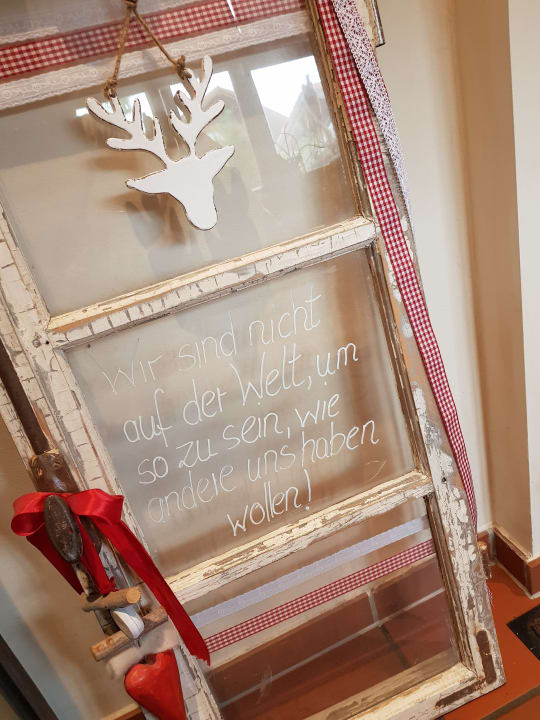 Wir sind nicht
auf der Welt, um
so zu sein, wie
andere uns haben
wollen!